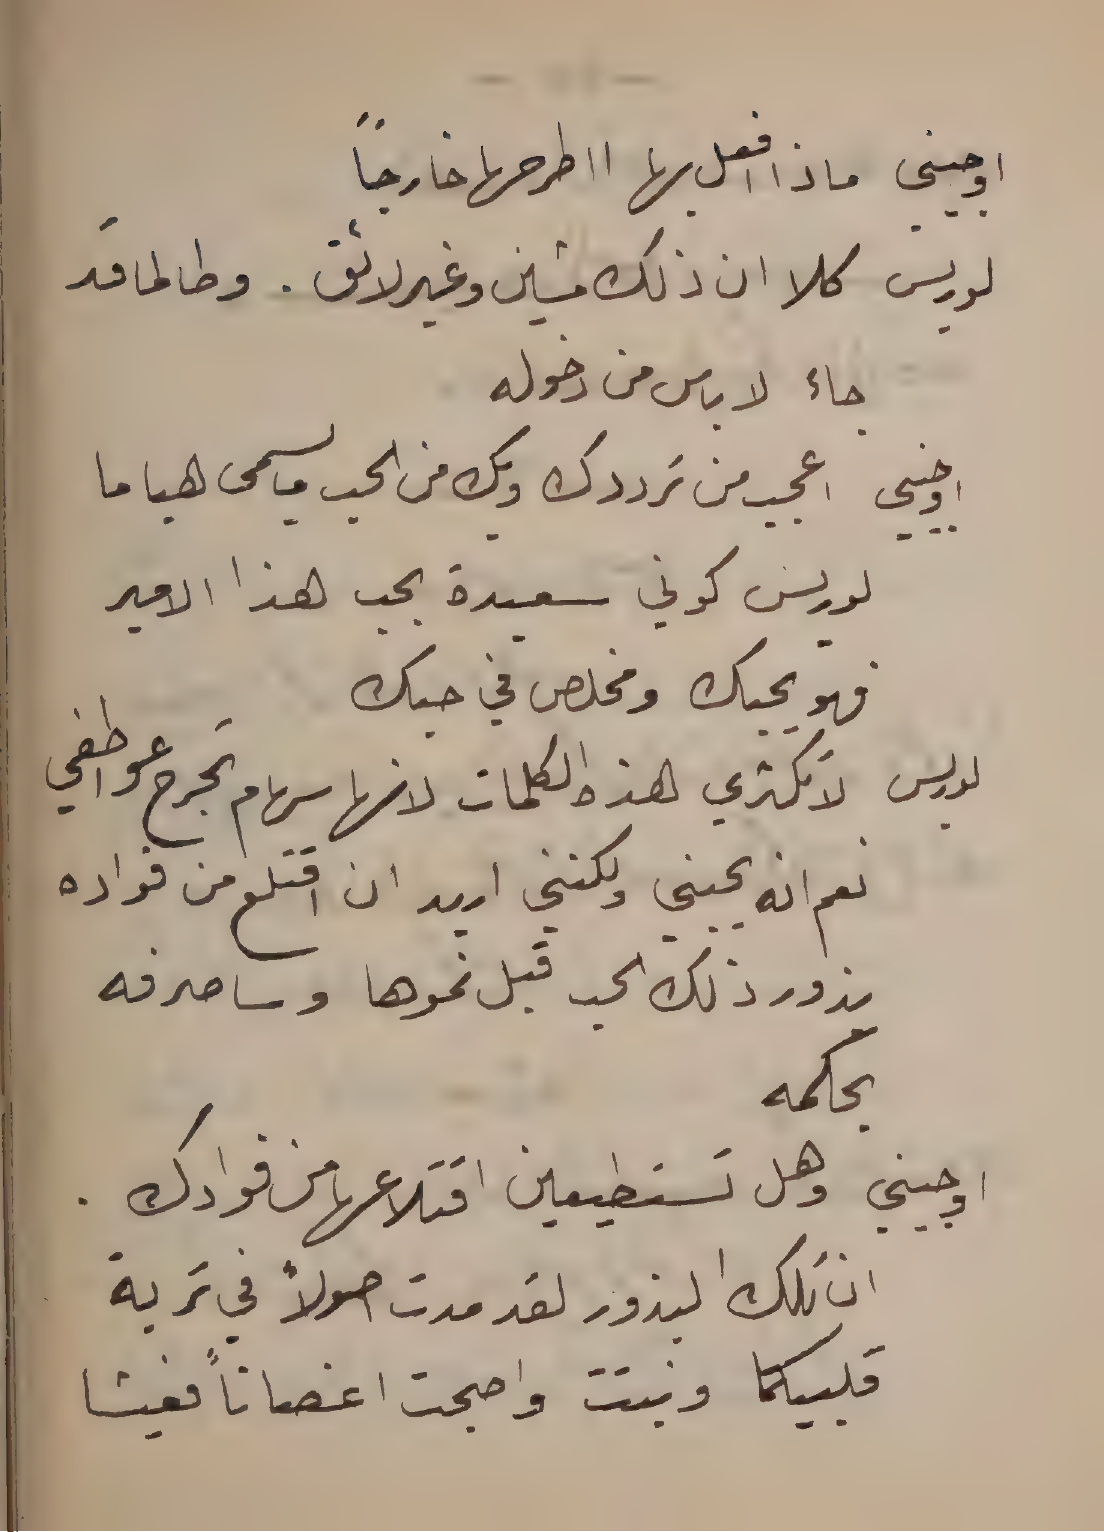 اوجيني ماذا افعل بها ااطرحها خارجاً
لوريس كلا ان ذلك مشين وغير لائق . وطالما قد
جاء لا باس من دخوله
اوجيني اعجب من ترددك وبك من الحب ما يسمى هياما
لوريس كوني سعيدة بحب هذا الامير
فهو يحبك ومخلص في حبك
لوريس لا تكثري هذه الكلمات لانها سهام تجرح عواطفي
نعم انه يحبني ولكنني اريد ان اقتلع من فواده
بذور ذلك الحب قبل نموها وساصرفه
بحكمه
اوجيني وهل تستطيعين اقتلاعها من فوادك .
ان تلك البذور لقد مدت اصولاً في تربة
قلبيكما ونبتت واصبحت اغصاناً